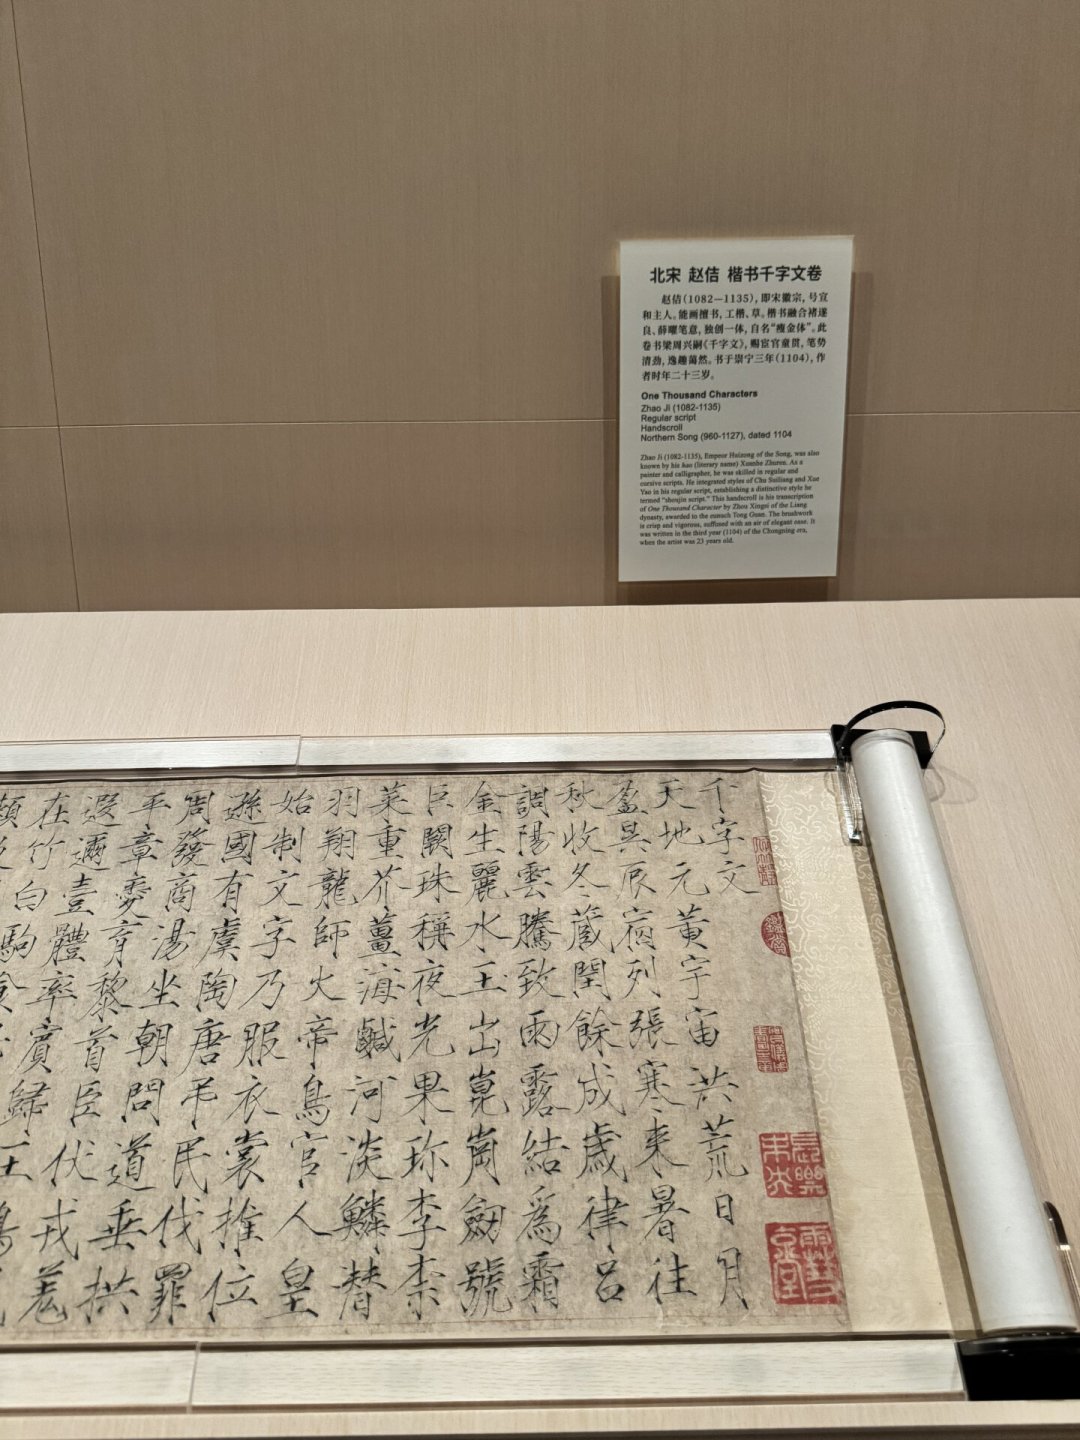 北宋 赵佶 楷书千字文卷
赵佶（1082—1135），即宋徽宗，号宣
和主人。能画擅书，工楷、草。楷书融合褚遂
良、薛曜笔意，独创一体，自名“瘦金体”。此
卷书梁周兴嗣《千字文》，赐宦官童贯，笔势
清劲，逸趣蔼然。书于崇宁三年（1104），作
者时年二十三岁。
One Thousand Characters
Zhao Ji (1082-1135)
Regular script
Handscroll
Northern Song (960-1127), dated 1104
Zhao Ji (1082-1135), Empeor Huizong of the Song, was also
known by his hao (literary name) Xuanhe Zhuren. As a
painter and calligrapher, he was skilled in regular and
cursive scripts. He integrated styles of Chu Suiliang and Xue
Yao in his regular script, establishing a distinctive style he
termed "shoujin script." This handscroll is his transcription
of One Thousand Character by Zhou Xingsi of the Liang
dynasty, awarded to the eunuch Tong Guan. The brushwork
is crisp and vigorous, suffused with an air of elegant ease. It
was written in the third year (1104) of the Chongning era,
when the artist was 23 years old.
千字文
天地元黃宇宙洪荒日月
盈昃辰宿列張寒來暑往
秋收冬蔵閏餘成歲律呂
調陽雲騰致雨露結爲霜
金生麗水玉出崑崗劒號
巨闕珠稱夜光果珎李柰
菜重芥薑海鹹河淡鱗
羽翔龍師火帝鳥官人皇
始制文字乃服衣裳推位
遜國有虞陶唐弔民伐罪
周發商湯坐朝問道垂拱
平章愛育黎首臣伏戎羌
遐邇壹體率賓歸王鳴
在竹白駒食